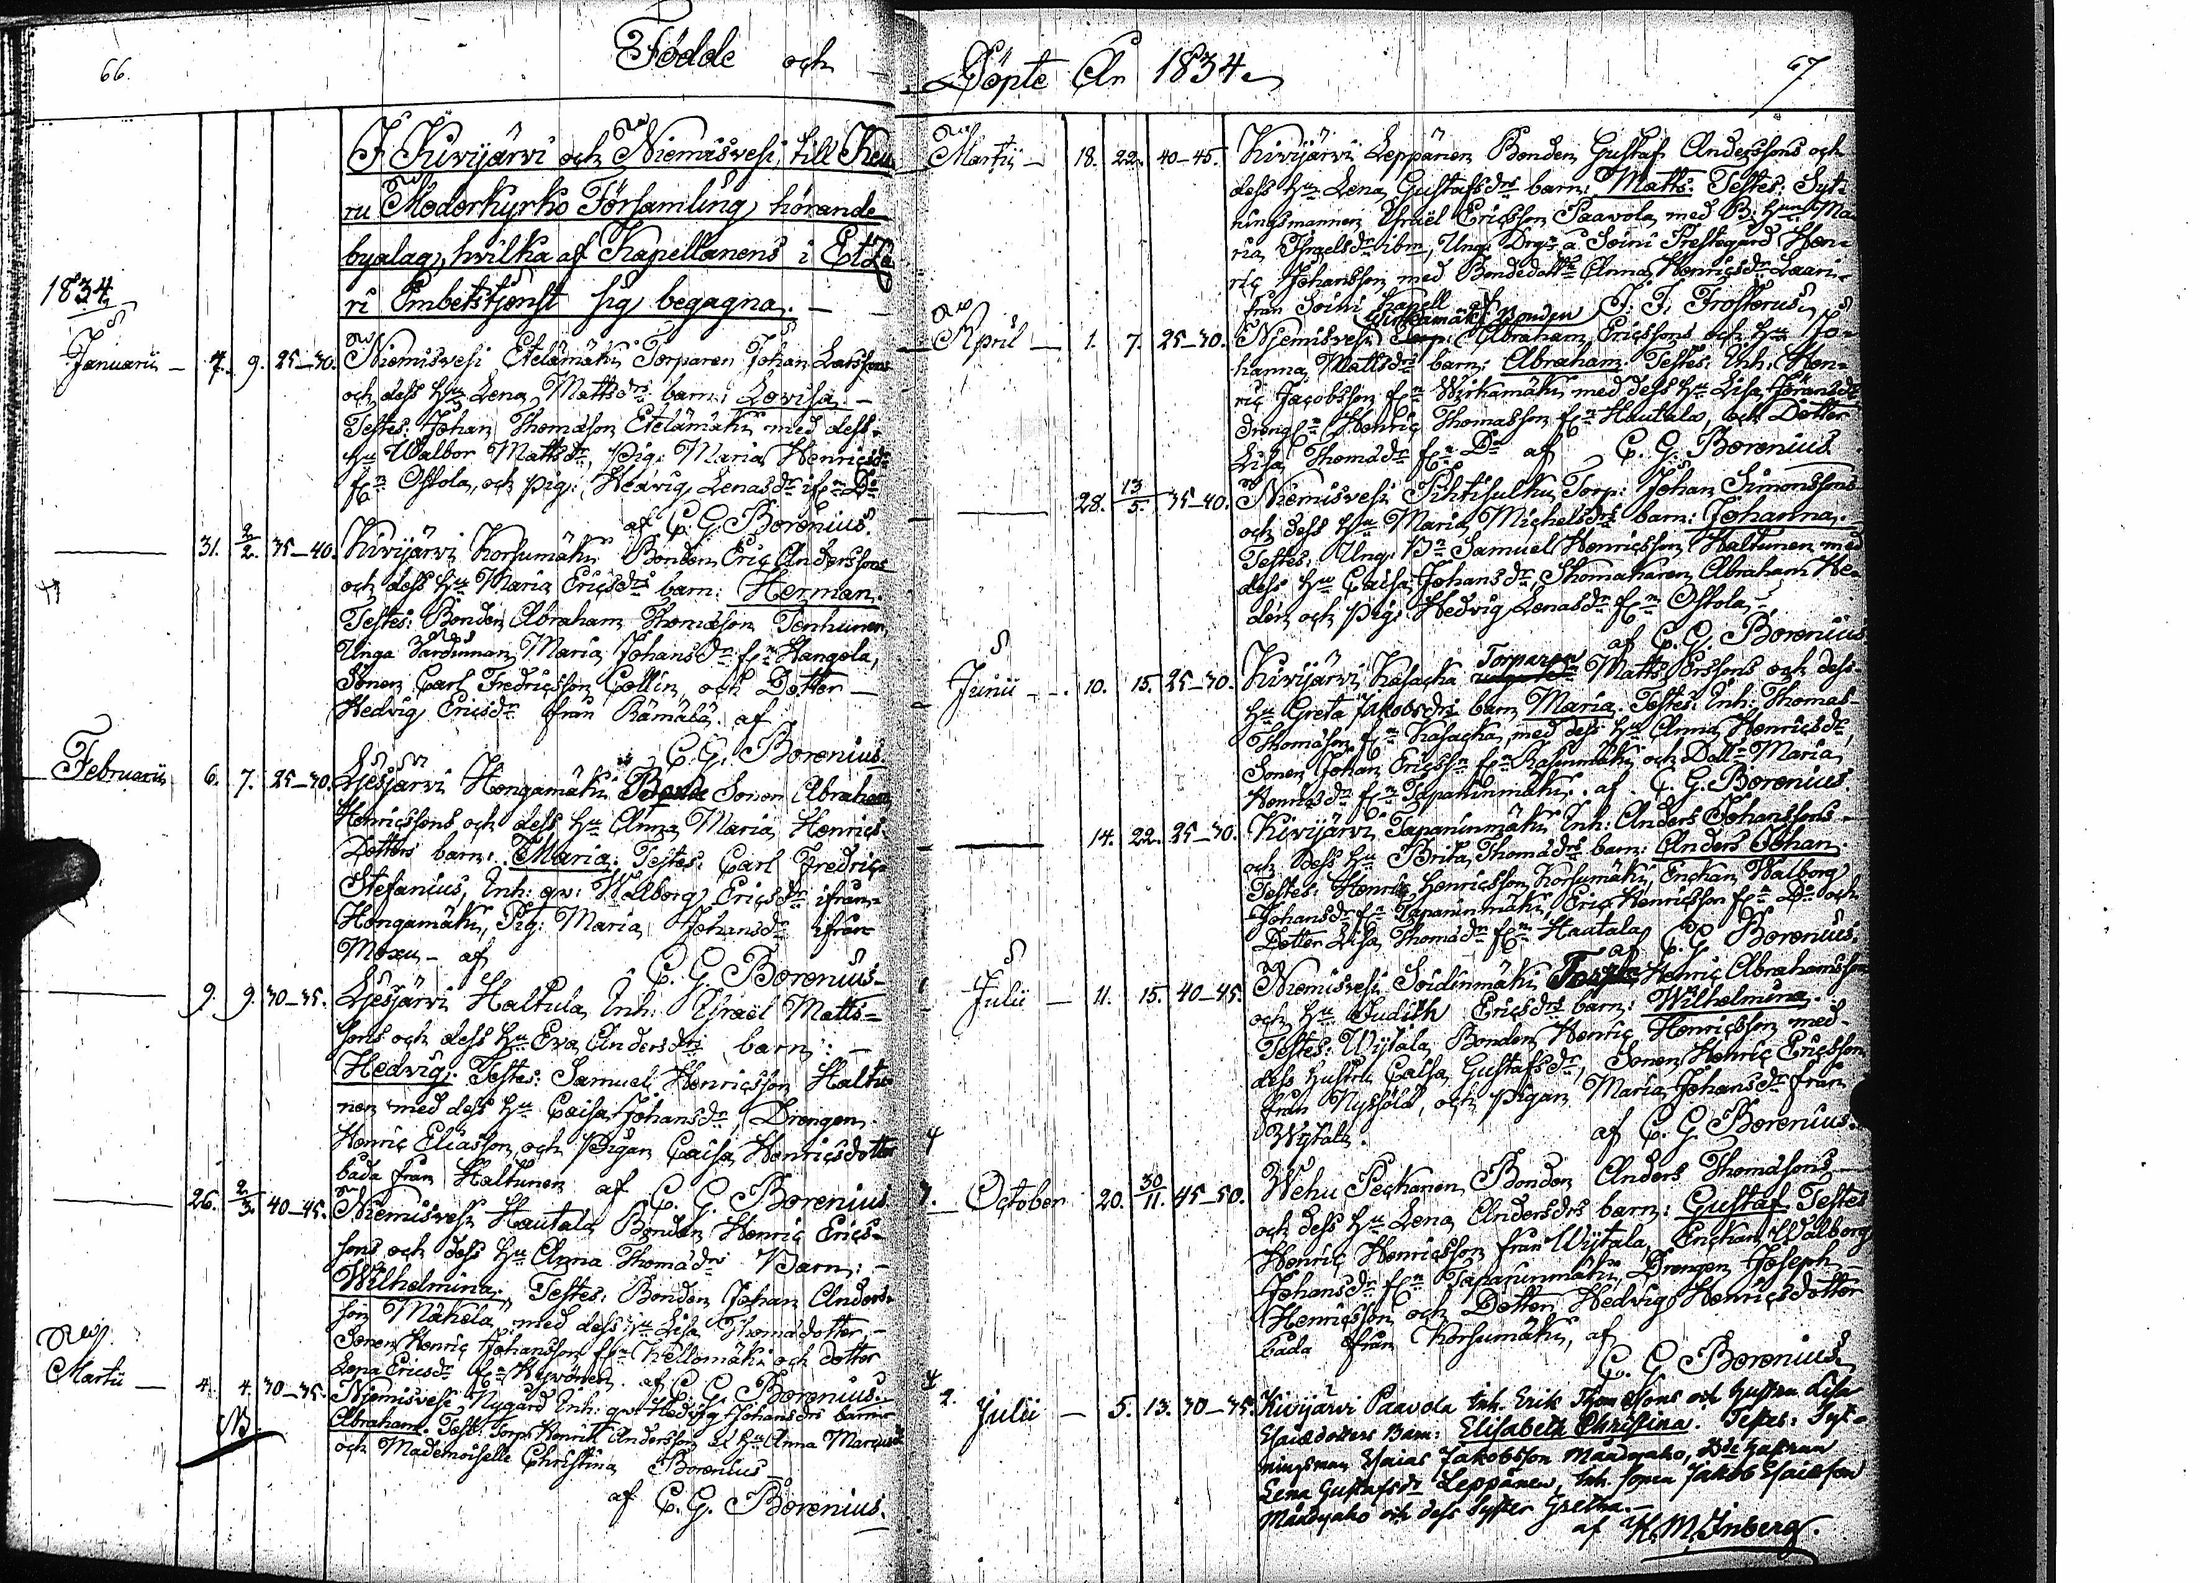 66.
Födde och
1834
I Kivijärvi och Niemisvesi till Keu
ru Moderkyrko Församling hörande
byalag, hvilka af Kapellanens i Etzä
ri Embetstjenst sig begagna. —
Januarii — 7. 9. 25—30. Niemisvesi Etelämäki Torparen Johan Larssons
och dess Hu Lena Mattsdrs barn: Lovisa. —
Testes: Johan Thomasson Etelämäki med dess
Hu Walbor Mattsdr, Pig: Maria Henricsdr
fr:n Ostola, och pig: Hedvig Lenasdr ifr:n Do
af C. G. Borenius.
— 31. 2/2. 35—40. Kivijärvi Korsumäki Bonden Eric Anderssons
och dess Hu Maria Ericsdrs barn: Herman.
Testes: Bonden Abraham Thomasson Tenhunen,
Unga Maria Johansdr fr:n Hangola,
Sonen Carl Fredricsson Collin, och Dotter —
Hedvig Ericsdr från Rämälä. af
C. G. Borenius.
Februarii 6. 7. 25—30. Liesjärvi Hongamäki Sonen Abraham
Henricssons och dess Hu Anna Maria Henrics
Dotters barn: Maria. Testes: Carl Fredric
Stefanius, Inh: qv: Wallborg Ericsdr ifrån
Hongamäki, Pig: Maria Johansdr ifrån
Moxu — af
C. G. Borenius
— 9. 9. 30—35. Liesjärvi Haltula Inh: Israël Matts-
sons och dess Hu Eva Andersdrs barn: —
Hedvig. Testes: Samuel Henricsson Haltu
nen med dess Hu Caisa Johansdr, Drengen
Henric Eliasson och Pigan Caisa Henricsdotter
båda från Haltunen af C. G. Borenius
— 26. 2/3. 40—45. Niemisvesi Hautala Bonden Henric Erics-
sons och dess Hu Anna Thomadrs Barn: —
Wilhelmina. Testes: Bonden Johan Anders-
son Mäkelä med dess Hu Lisa Thomadotter, —
Sonen Henric Johansson fr:n Kellomäki och dotter
Lena Ericsdr fr:n Hyvönen. af C. G. Borenius.
Martii — 4. 4. 30—35. Niemisvesi Nygård Inh: qv: Hedvig Johansdrs barn
NB
Abraham. Test: Torp: Henrik Andersson o. Hu Anna
och Mademoiselle Christina Borenius —
af C. G. Borenius.
Döpte År 1834.
67
Martii — 18. 22. 40—45. Kivijärvi Leppänen Bonden Gustaf Anderssons och
dess Hu Lena Gustafsdrs barn: Matts. Testes: Syt-
ningsmannen Israël Ericsson Paavola med B: Hun Ma
ria Israelsdr ibm, Ung: Drgn å Soini Prestegård Hen-
ric Johansson med Bondedottn Anna Henricsdr Laari-
från Soini Kapell af J. F. Frosterus.
April — 1. 7. 25—30. Niemisvesi Wirkamäki Bonden Abraham Ericssons och Hu Jo-
hanna Mattsdrs barn: Abraham. Testes: Inh: Hen-
ric Jacobsson fr:n Wirkamäki med dess Hu Lisa Göransdr
Drengn Henric Thomasson fr:n Hautala, och Dotter
Lisa Thomadr fr:n Do af C. G. Borenius.
— 28. 13/5. 35—40. Niemisvesi Pihtisulku Torp: Johan Simonssons
och dess Hu Maria Michelsdrs barn: Johanna.
Testes: Ung: Bn Samuel Henricsson Haltunen med
dess Hu Caisa Johansdr, Skomakaren Abraham He-
dén och Pig: Hedvig Lenasdr fr:n Ostola, —
af C. G. Borenius
Junii — 10. 15. 25—30. Kivijärvi Kasacka Torparen Matts Erssons och dess
Hu Greta Jakobsdrs barn Maria. Testes: Inh: Thomas
Thomasson fr:n Kasacka, med dess Hu Anna Henricsdr,
Sonen Johan Ericsson fr:n och Dottn Maria
Henricsdr fr:n Tapaninmäki. af C. G. Borenius.
— 14. 22. 25—30. Kivijärvi Tapaninmäki Inh: Anders Johanssons
och dess Hu Brita Thomadrs barn: Anders Johan.
Testes: Henric Henricsson Korsumäki, Enckan Walborg
Johansdr fr:n Tapaninmäki, Eric Henricsson fr:n Do och
Dotter Lisa Thomadr fr:n Hautala af C. G. Borenius.
Julii — 11. 15. 40—45. Niemisvesi Soidinmäki Henric Abrahamsson
och Hu Judith Ericsdrs barn: Wilhelmina.
Testes: Wytala Bonden Henric Henricsson med
dess hustru Caisa Gustafsdr, Sonen Henric Ericsson
från Nysjölä, och Pigan Maria Johansdr från
Wytala. af C. G. Borenius.
October 20. 30/11. 45—50. Wehu Peckanen Bonden Anders Thomasons
och dess Hu Lena Andersdrs barn: Gustaf. Testes
Henric Henricsson från Wytala, Enckan Walborg
Johansdr fr:n Tapaninmäki, Drengen Joseph
Henricsson och Dotter Hedvig Henricsdotter
båda från Korsumäki, af
C. G. Borenius
2. Julii — 5. 13. 30—35. Kivijärvi Paavola Inh. Erik Thomassons och Hustru Lisa
Esaiædotters Barn: Elisabeth Christina. Testes: Syt-
ningsman Esaias Jakobsson Maadojako, Bde hustrun
Lena Gustafsdr Leppänen, Inh. sonen Jakob Esaiæson
Maadojako och dess Syster Gretha. —
af K. M. Inberg.